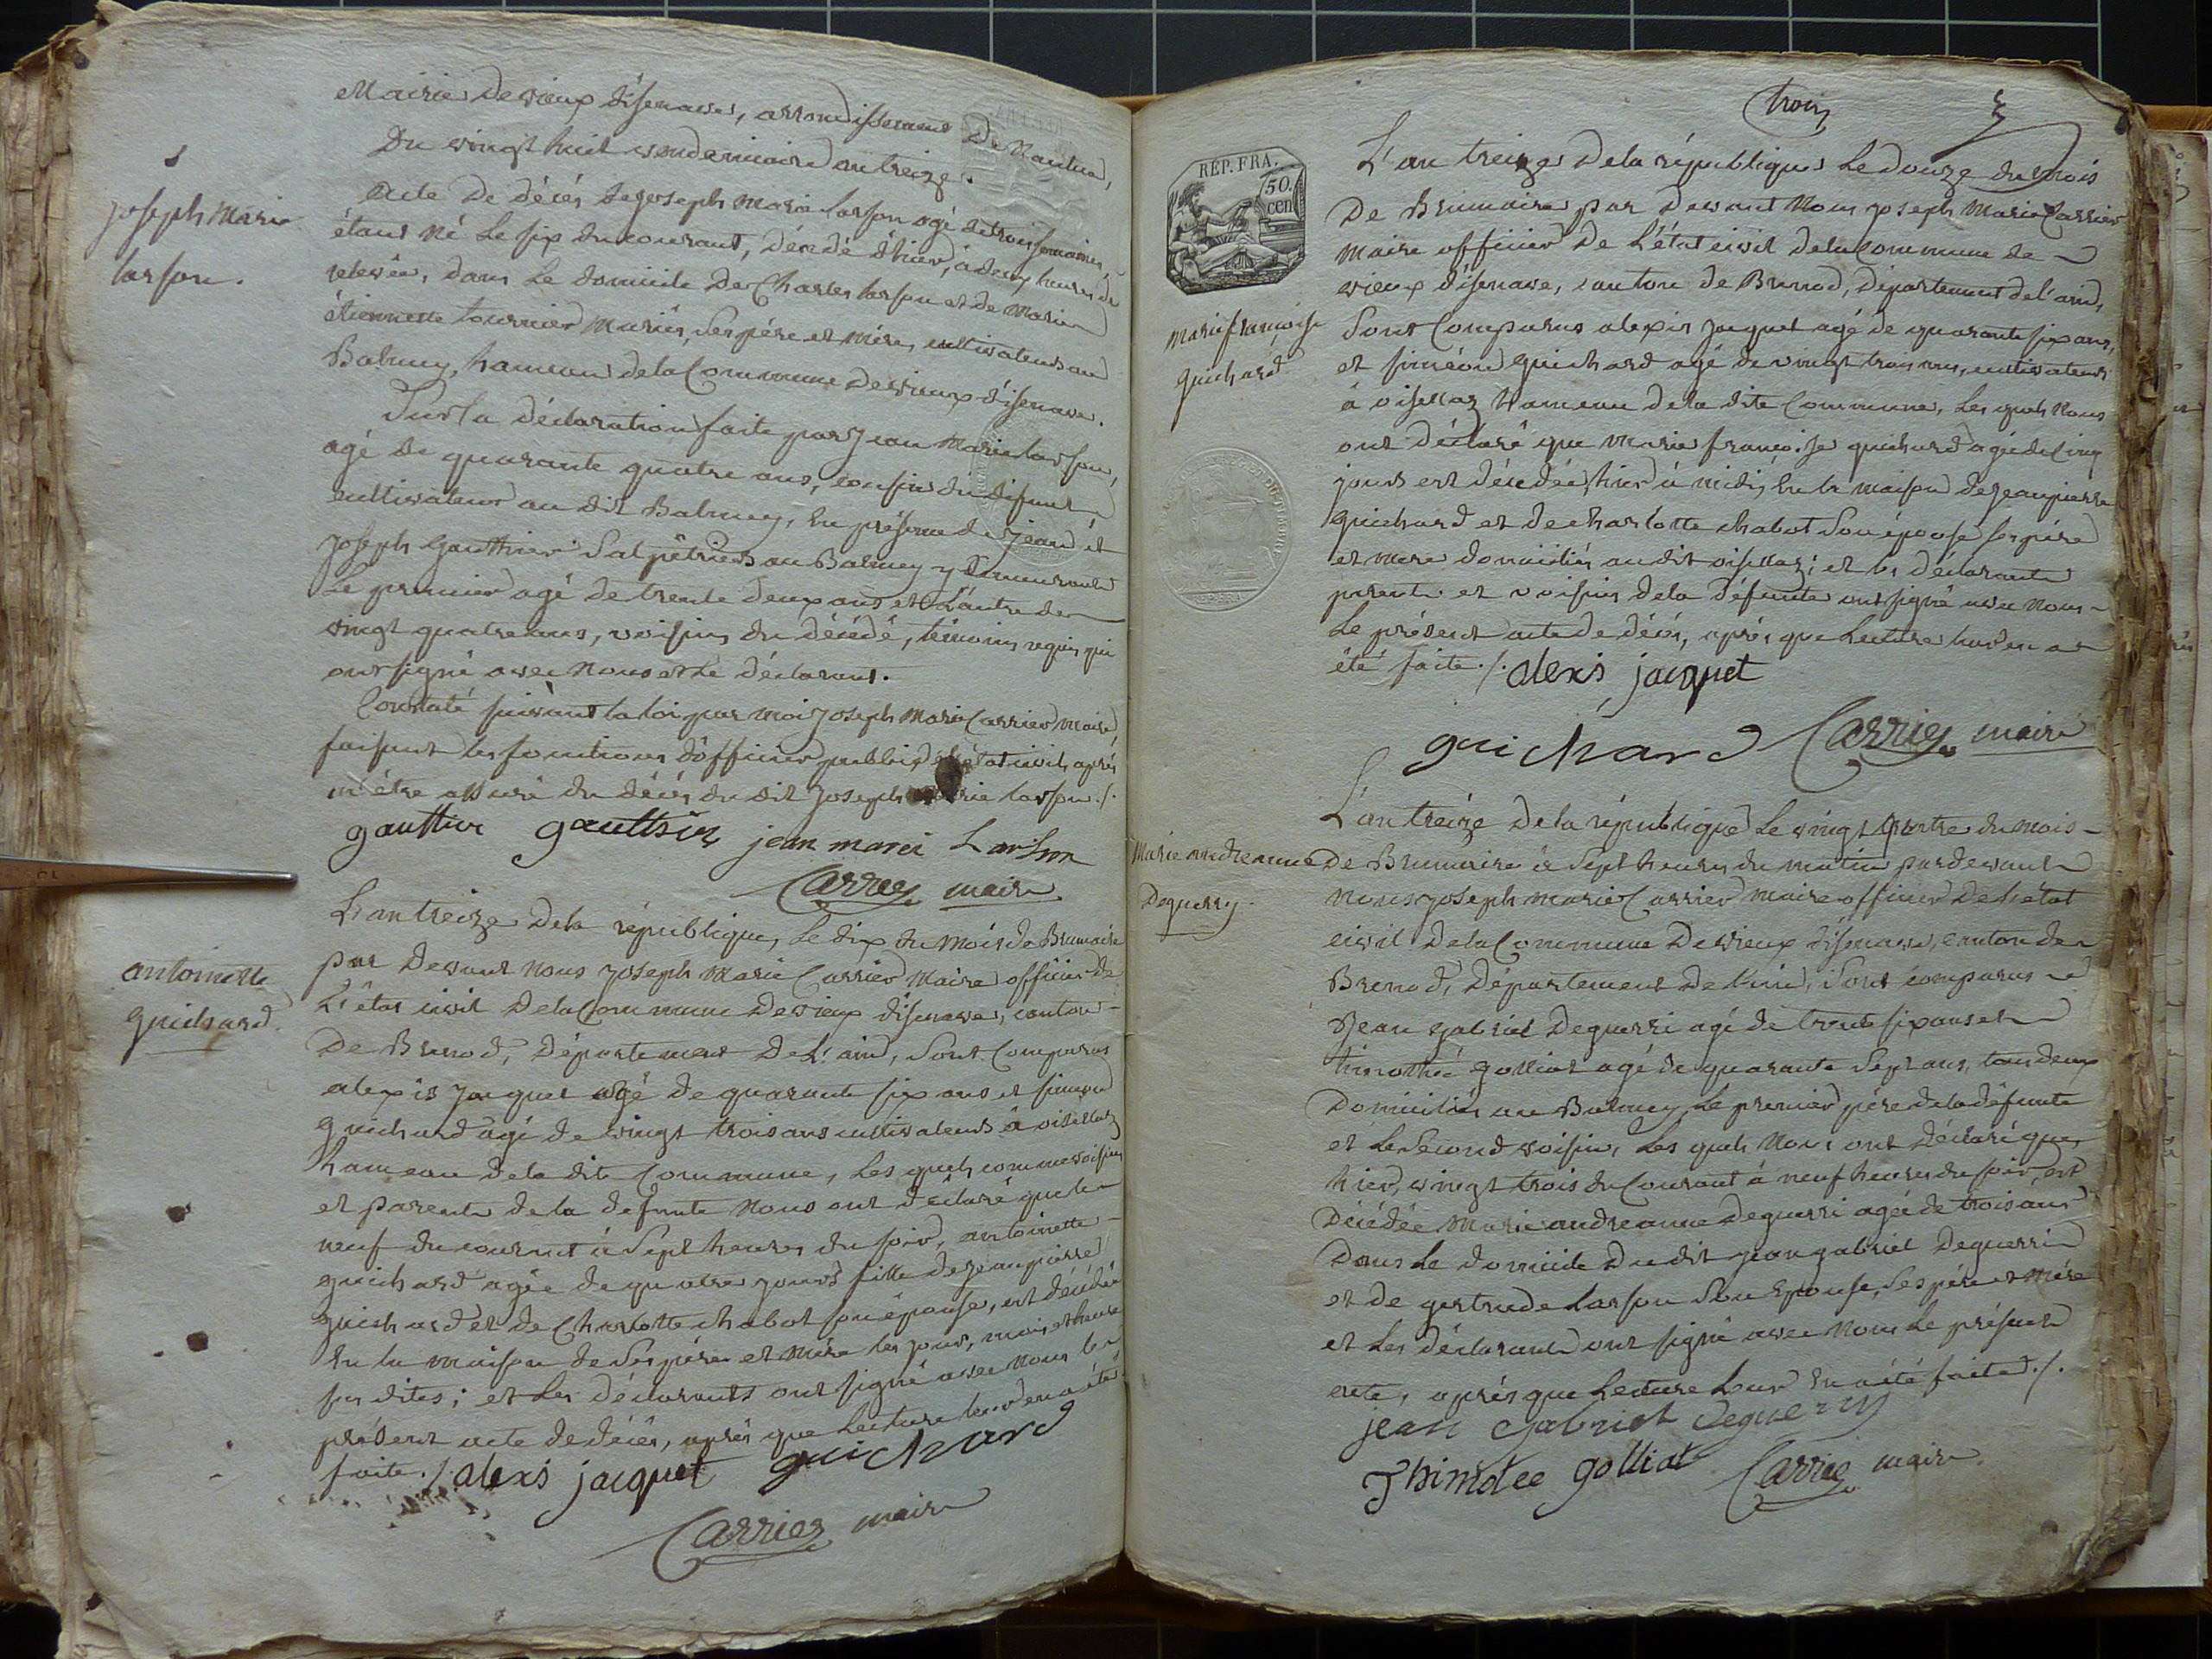 Mairie de vieux d'isenave, arrondissement De Nantua,
Du vingt huit vendemiaire an treize.
Joseph Marie
larson.
Acte De décès de Joseph Marie larson agé de trois semaines,
étant né Le six du courant, décédé d'hier, à deux heures de
relevée, dans Le domicile De Charles larson et de Marie
étiennette tournier mariés, ses père et mère, cultivateurs au
Balmey, hameau de la Commune de vieux d'isenave.
Sur la déclaration faite par Jean Marie larson,
agé de quarante quatre ans, cousin du défunt
cultivateur au dit Balmey, En présence de jean et
joseph gauthier Salpêtriers au Balmey y demeurant
Le premier agé de trente deux ans et L'autre de
vingt quatre ans, voisins du décédé, témoins requis qui
ont signé avec nous et Le déclarant.
Constaté suivant la loi par moi Joseph Marie Carrier maire,
faisant les fonctions d'officier public de l'état civil, après
m'être assuré du décès du dit Joseph Marie larson ./.
gauttier gaultier jean marei Larson
Carrier maire
antoinette
guichard.
L'an treize de la république, Le dix du mois de Brumaire
par Devant nous Joseph Marie Carrier Maire officier de
L'état civil De la Commune De vieux d'isenave, canton
De Brenod, Département De L'ain, Sont Comparus
alexis Jacquet agé de quarante six ans et simeon
guichard agé de vingt trois ans cultivateurs à oisellaz
hameau de la dite Commune, Les quels comme voisins
et parents de la defunte nous ont déclaré que le
neuf du courant à Sept heures du soir, antoinette
guichard agée de quatre jours fille de jeanpierre
guichard et de Charlotte chabot son épouse, est décédée
En la maison de Ses père et mère les jour, mois et heure
sus dites; et Les déclarants ont signé avec nous le
présent acte de décès, après que Lecture leur en a été
faite ./. alexis jacquet guichard
Carrier maire
trois
RÉP. FRA.
50.
cen
L'an treize De la république Le douze du mois
De Brumaire par Devant Nous joseph Marie Carrier
Maire officier De L'état civil de la Commune de
vieux d'isenave, canton de Brenod, Département de l'ain,
marie françoise
guichard
Sont Comparus alexis jacquet agé de quarante six ans,
et siméon guichard agé de vingt trois ans, cultivateurs
à oisellaz hameau de la dite Commune, Les quels Nous
ont déclaré que Marie françoise guichard agée de Cinq
jours est décédée, hier à midi, En la maison de jeanpierre
guichard et de charlotte chabot Son épouse, ses père
et mere domiciliés au dit oisellaz; et les déclarants
parents et voisins de la défunte ont signé avec nous
Le présent acte de décès, après que Lecture leur en a
été faite ./. alexis jacquet
guichard Carrier maire
Marie andreanne
Deguerry.
L'an treize De la république Le vingt quatre du mois
de Brumaire à Sept heures du matin par devant
Nous joseph Marie Carrier maire officier De L'état
civil De la Commune De vieux d'isenave, canton de
Brenod, Département De L'ain, Sont comparus
Jean gabriel Deguerri agé de trente six ans et
timothé golliat agé de quarante Sept ans, tous deux
Domiciliés au Balmey, Le premier père de la défunte
et Le Second voisin, Les quels Nous ont déclaré que
hier, vingt trois du Courant à neuf heures du soir, est
Décédée Marie andreanne Deguerri agée de trois ans
Dans Le domicile Du dit jean gabriel Deguerri
et de gertrude Larson Son Epouse, Ses père et mère
et Les déclarants ont signé avec Nous Le présent
acte, après que Lecture Leur En a été faite ./.
jean gabriel deguerry
Thimotee golliat Carrier maire.